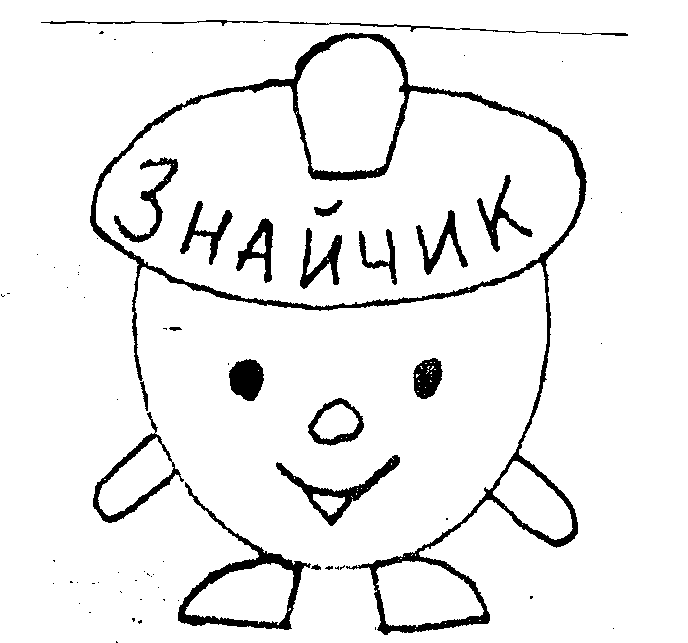 Знайчик